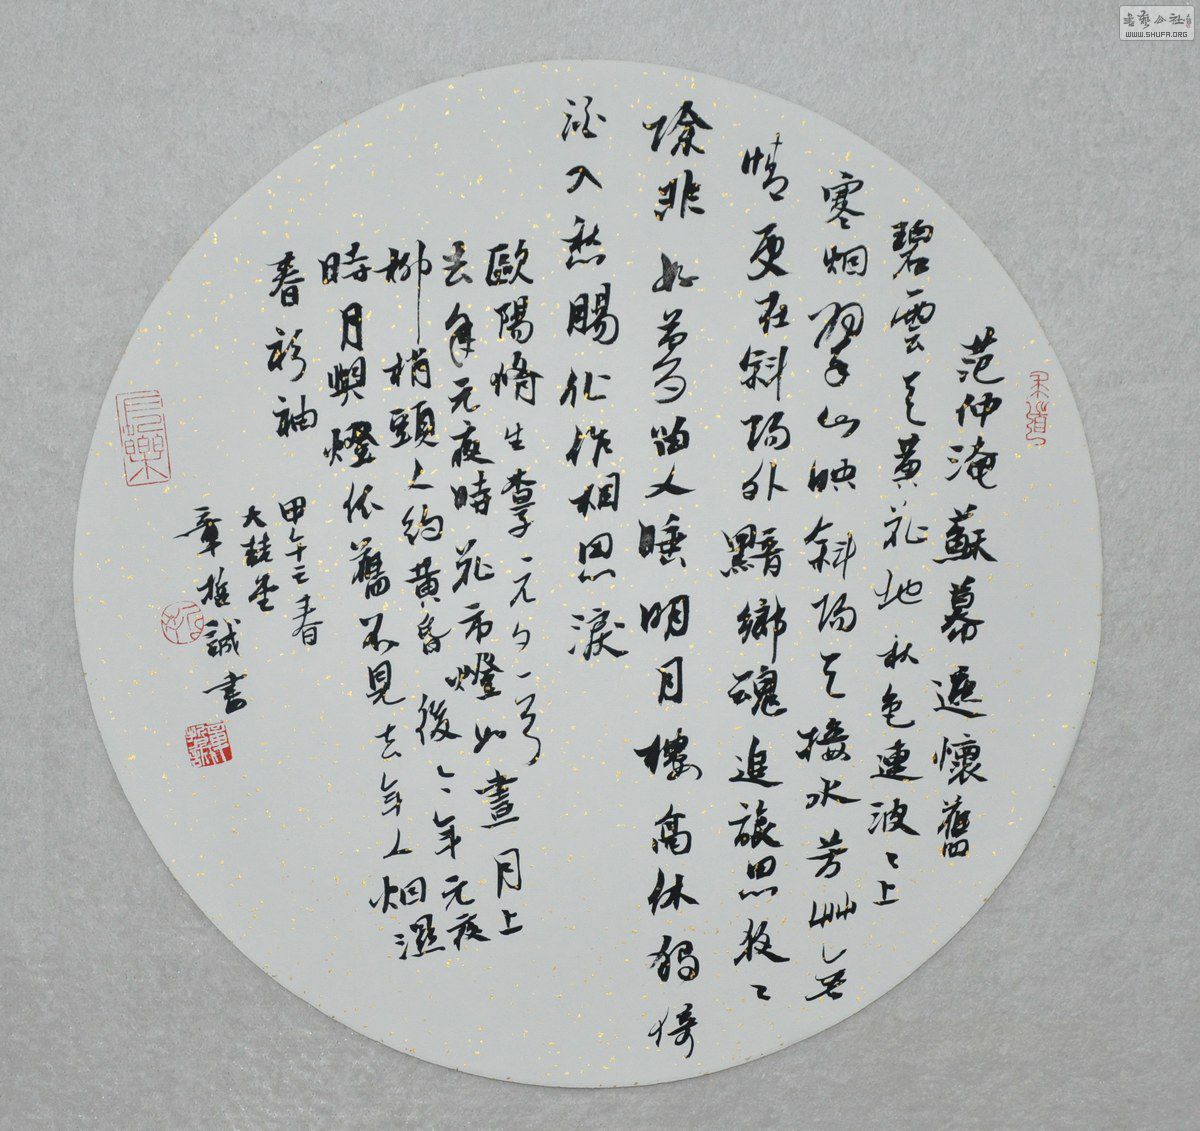 范仲淹蘇幕遮懷舊
碧雲天黃花地秋色連波〻上
寒烟翠山映斜陽天接水芳艸無
情更在斜陽外黯鄉魂追旅思夜〻
除非好夢留人睡明月樓高休獨倚
酒入愁腸化作相思淚
歐陽脩生查子一元夕一
去年元夜時花市燈如晝月上
柳梢頭人約黃昏後〻年元夜
時月與燈依舊不見去年人烟濕
春衫袖
甲午春
大堂
章誠書
WWW.SHUFA.ORG